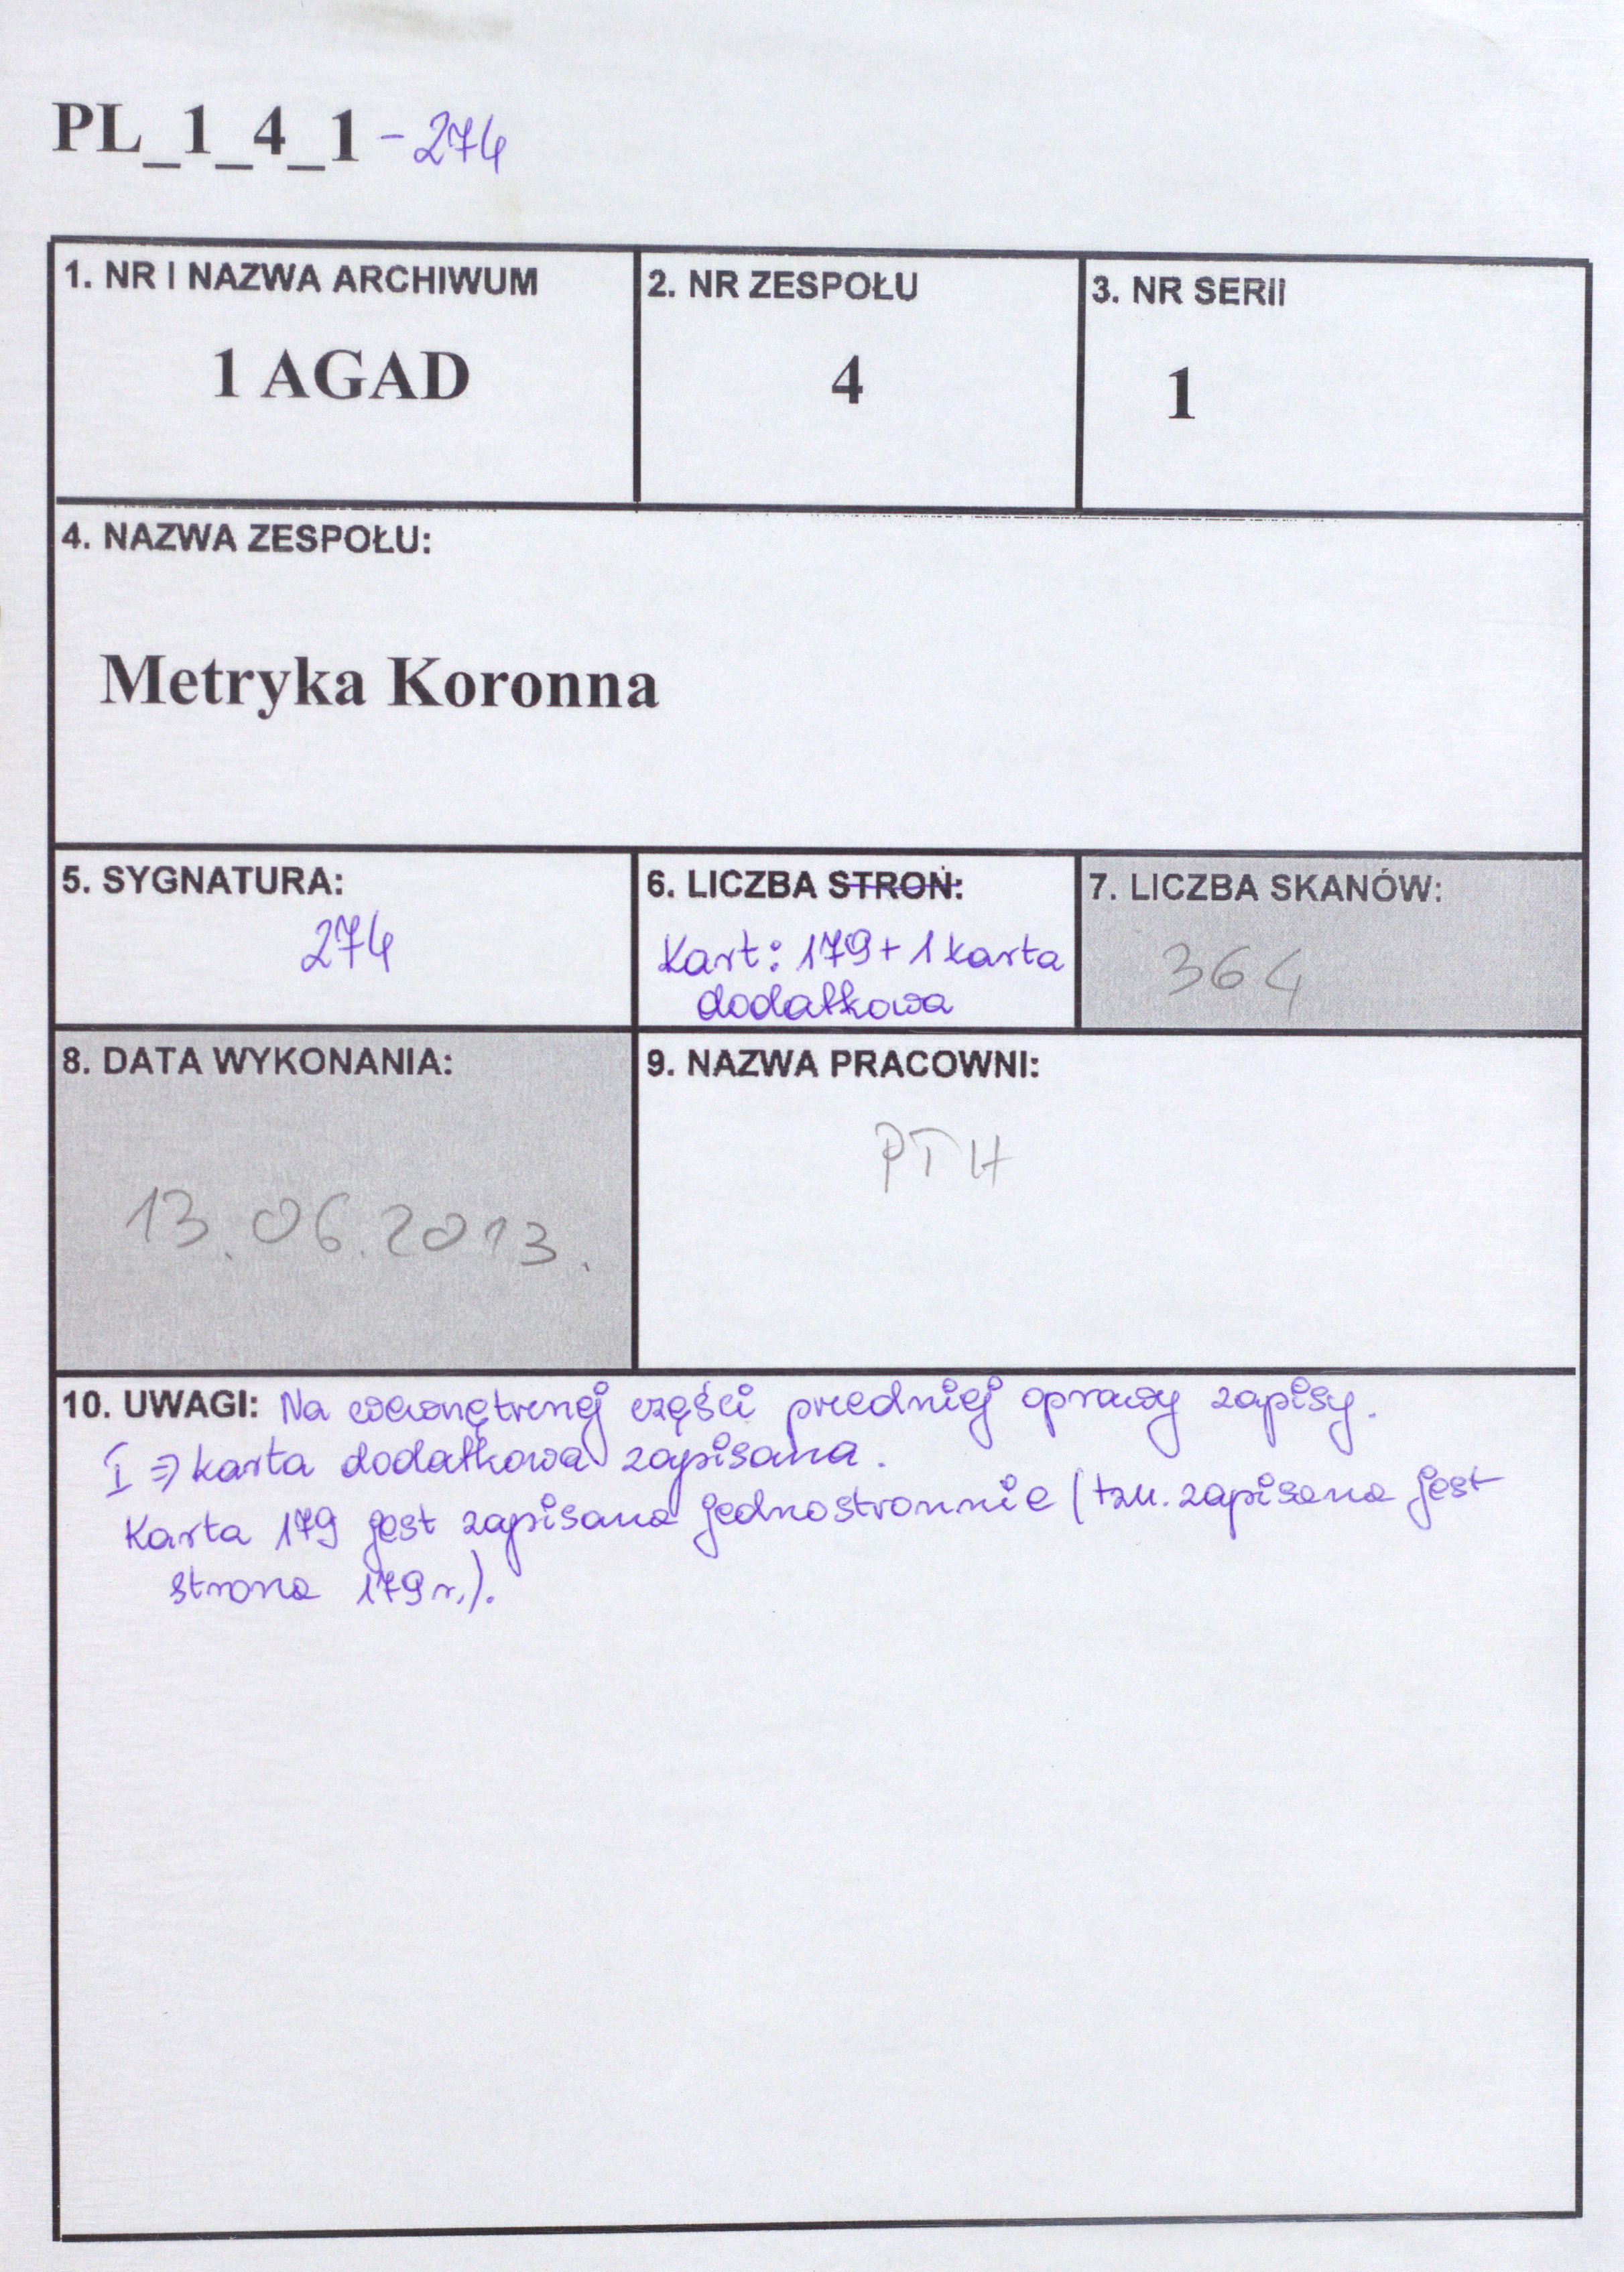 PL_1_4_1 - 274
1. NR I NAZWA ARCHIWUM
1 AGAD
2. NR ZESPOŁU
4
3. NR SERII
1
4. NAZWA ZESPOŁU:
Metryka Koronna
5. SYGNATURA:
274
6. LICZBA STRON:
Kart: 179 + 1 karta
dodatkowa
7. LICZBA SKANÓW:
364
8. DATA WYKONANIA:
13.06.2013.
9. NAZWA PRACOWNI:
PTH
10. UWAGI: Na wewnętrznej części przedniej oprawy zapisy.
I => karta dodatkowa zapisana.
Karta 179 jest zapisana jednostronnie (tzn. zapisana jest
strona 179 r.).